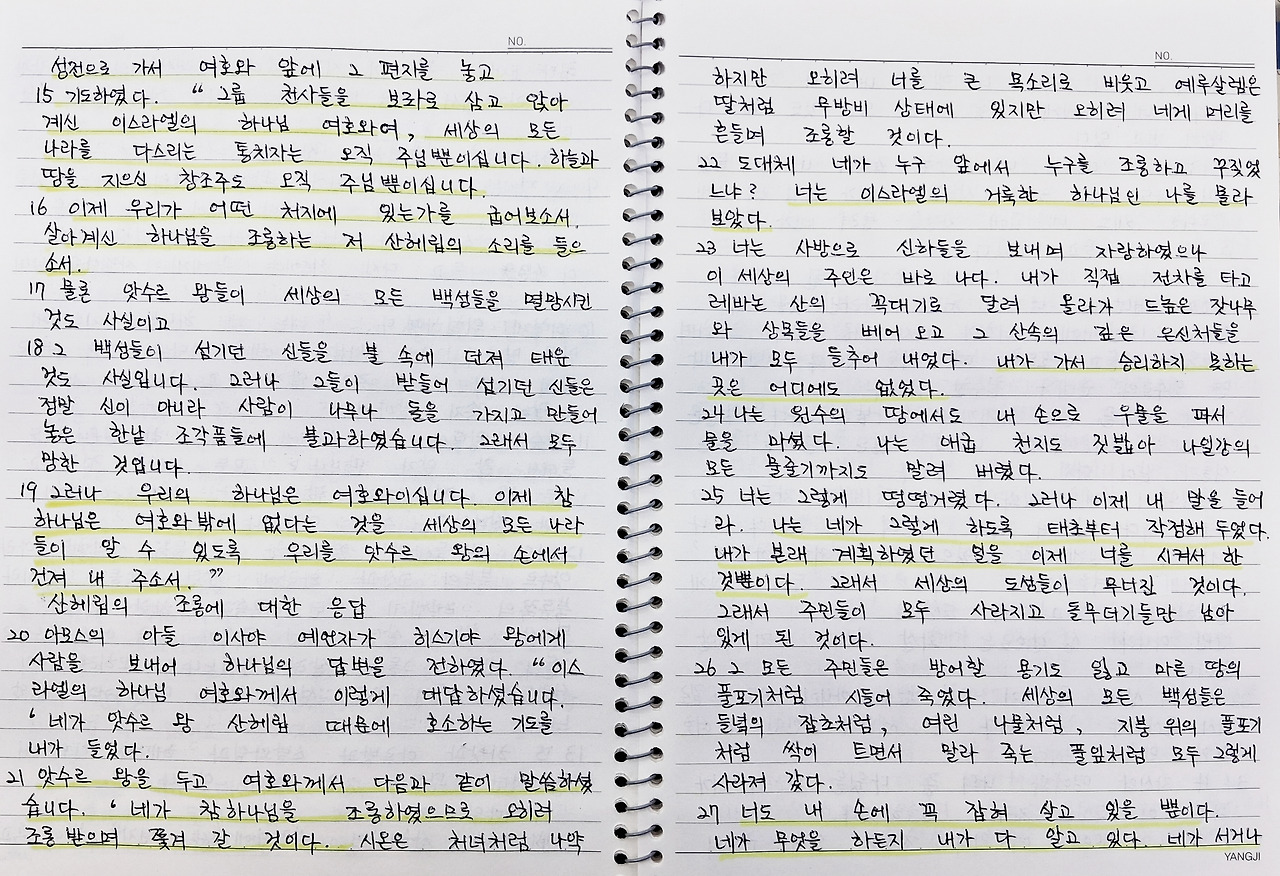 NO.
성전으로 가서 여호와 앞에 그 편지를 놓고
15 기도하였다. "그룹 천사들을 보좌로 삼고 앉아
계신 이스라엘의 하나님 여호와여, 세상의 모든
나라를 다스리는 통치자는 오직 주님뿐이십니다. 하늘과
땅을 지으신 창조주도 오직 주님뿐이십니다.
16 이제 우리가 어떤 처지에 있는가를 굽어보소서.
살아계신 하나님을 조롱하는 저 산헤립의 소리를 들으
소서.
17 물론 앗수르 왕들이 세상의 모든 백성들을 멸망시킨
것도 사실이고
18 그 백성들이 섬기던 신들을 불 속에 던져 태운
것도 사실입니다. 그러나 그들이 받들어 섬기던 신들은
정말 신이 아니라 사람이 나무나 돌을 가지고 만들어
놓은 한낱 조각품들에 불과하였습니다. 그래서 모두
망한 것입니다.
19 그러나 우리의 하나님은 여호와이십니다. 이제 참
하나님은 여호와밖에 없다는 것을 세상의 모든 나라
들이 알 수 있도록 우리를 앗수르 왕의 손에서
건져 내 주소서."
산헤립의 조롱에 대한 응답
20 아모스의 아들 이사야 예언자가 히스기야 왕에게
사람을 보내어 하나님의 답변을 전하였다. "이스
라엘의 하나님 여호와께서 이렇게 대답하셨습니다.
'네가 앗수르 왕 산헤립 때문에 호소하는 기도를
내가 들었다.'
21 앗수르 왕을 두고 여호와께서 다음과 같이 말씀하셨
습니다. '네가 참하나님을 조롱하였으므로 오히려
조롱 받으며 쫓겨 갈 것이다. 시온은 처녀처럼 나약
NO.
하지만 오히려 너를 큰 목소리로 비웃고 예루살렘은
딸처럼 무방비 상태에 있지만 오히려 네게 머리를
흔들며 조롱할 것이다.
22 도대체 네가 누구 앞에서 누구를 조롱하고 꾸짖었
느냐? 너는 이스라엘의 거룩한 하나님인 나를 몰라
보았다.
23 너는 사방으로 신하들을 보내며 자랑하였으나
이 세상의 주인은 바로 나다. 내가 직접 전차를 타고
레바논 산의 꼭대기로 달려 올라가 드높은 잣나무
와 상목들을 베어 오고 그 산속의 깊은 은신처들을
내가 모두 들추어 내었다. 내가 가서 승리하지 못하는
곳은 어디에도 없었다.
24 나는 원수의 땅에서도 내 손으로 우물을 파서
물을 마셨다. 나는 애굽 천지도 짓밟아 나일강의
모든 물줄기까지도 말려 버렸다.
25 너는 그렇게 떵떵거렸다. 그러나 이제 내 말을 들어
라. 나는 네가 그렇게 하도록 태초부터 작정해 두었다.
내가 본래 계획하였던 일을 이제 너를 시켜서 한
것뿐이다. 그래서 세상의 도성들이 무너진 것이다.
그래서 주민들이 모두 사라지고 돌무더기들만 남아
있게 된 것이다.
26 그 모든 주민들은 방어할 용기도 잃고 마른 땅의
풀포기처럼 시들어 죽었다. 세상의 모든 백성들은
들녘의 잡초처럼, 여린 나물처럼, 지붕 위의 풀포기
처럼 싹이 트면서 말라 죽는 풀잎처럼 모두 그렇게
사라져 갔다.
27 너도 내 손에 꼭 잡혀 살고 있을 뿐이다.
네가 무엇을 하든지 내가 다 알고 있다. 네가 서거나
YANGJI